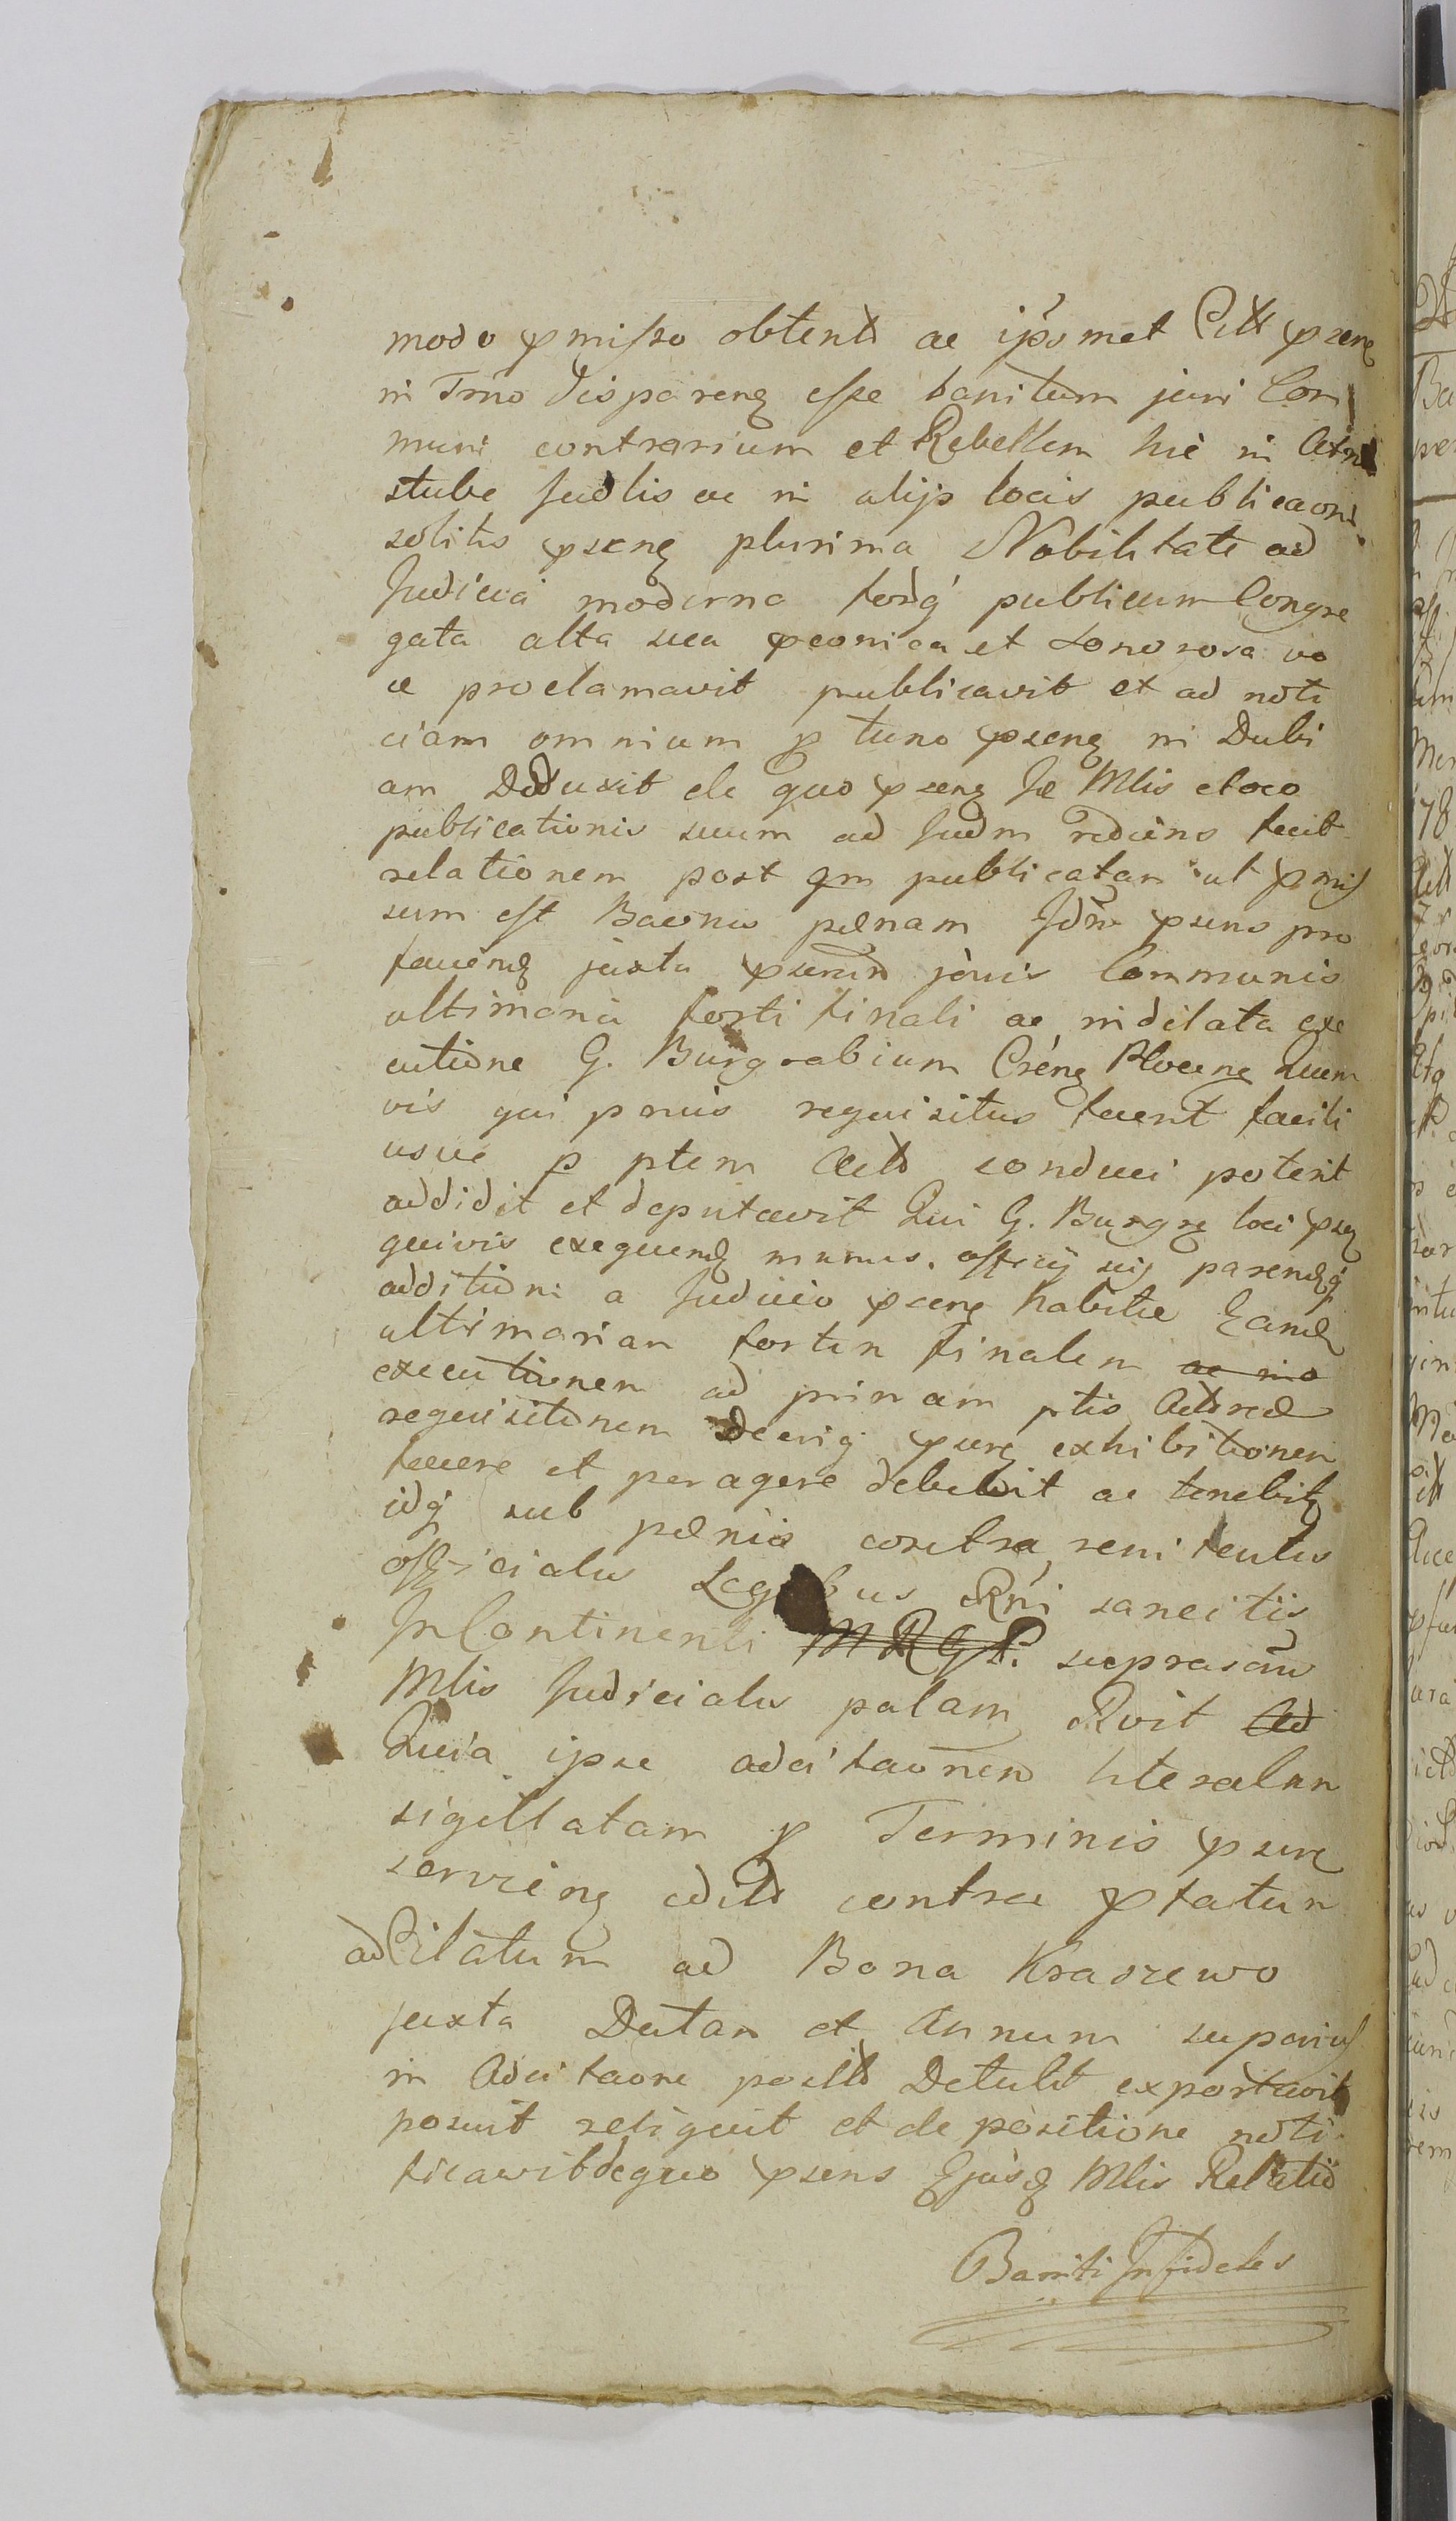 modo pmisso obtento ac ipsomet Citto psene
in Trno disparene esse banitum juri Com
muni contrarium et Rebellem hic in Atrio
stube Judlis ac in alijs locis publicaoni
solitis psene plurima Nobilitate ad
Judicia moderna forq publicum Congre
gata alta sua pconica et sonorosa vo
ce proclamavit publicavit et ad noti
ciam omnium p tunc psene in Dubi
am Deduxit de quo psens Je Mlis eloco
publicationis suum ad Judm rediens fecit
relationem post qm publicatam ut pmis
sum est Baonis pænam Jdm psens pro
faciend juxta pscrm juris Communis
ultimaria forti finali ac indilata exe
cutione G. Burgrabium Crene Plocene quem
vis qui prius requisitus fuerit facili
usve p ptem Acto conduci poterit
addidit et deputavit Qui G. Burgre loci psen
quivis exequend munus officij sui parendq
additioni a Judicio psene habitæ Eand
ultimariam fortem finalem ac in
executionem ad primam ptis Actoreæ
requisitionem Decriq psene exhibitionem
facere et peragere debebit ac tenebit
idq sub pænis contra renitentes
officiales Legibus Rni sancitis
In Continenti M R G P. suprascrus
Mlis Judicialis palam Rvit Ad
Quia ipse adcitaonem literalem
sigillatam p Terminis psene
serviene adito contra ptatum
adCitatum ad Bona Kraszewo
juxta Datam et Annum superius
in Adcitaone posito Detulit exportavit
posuit reliquit et de positione noti
ficavit de quo psens Ejusd Mlis Relatio
Baniti Infideles